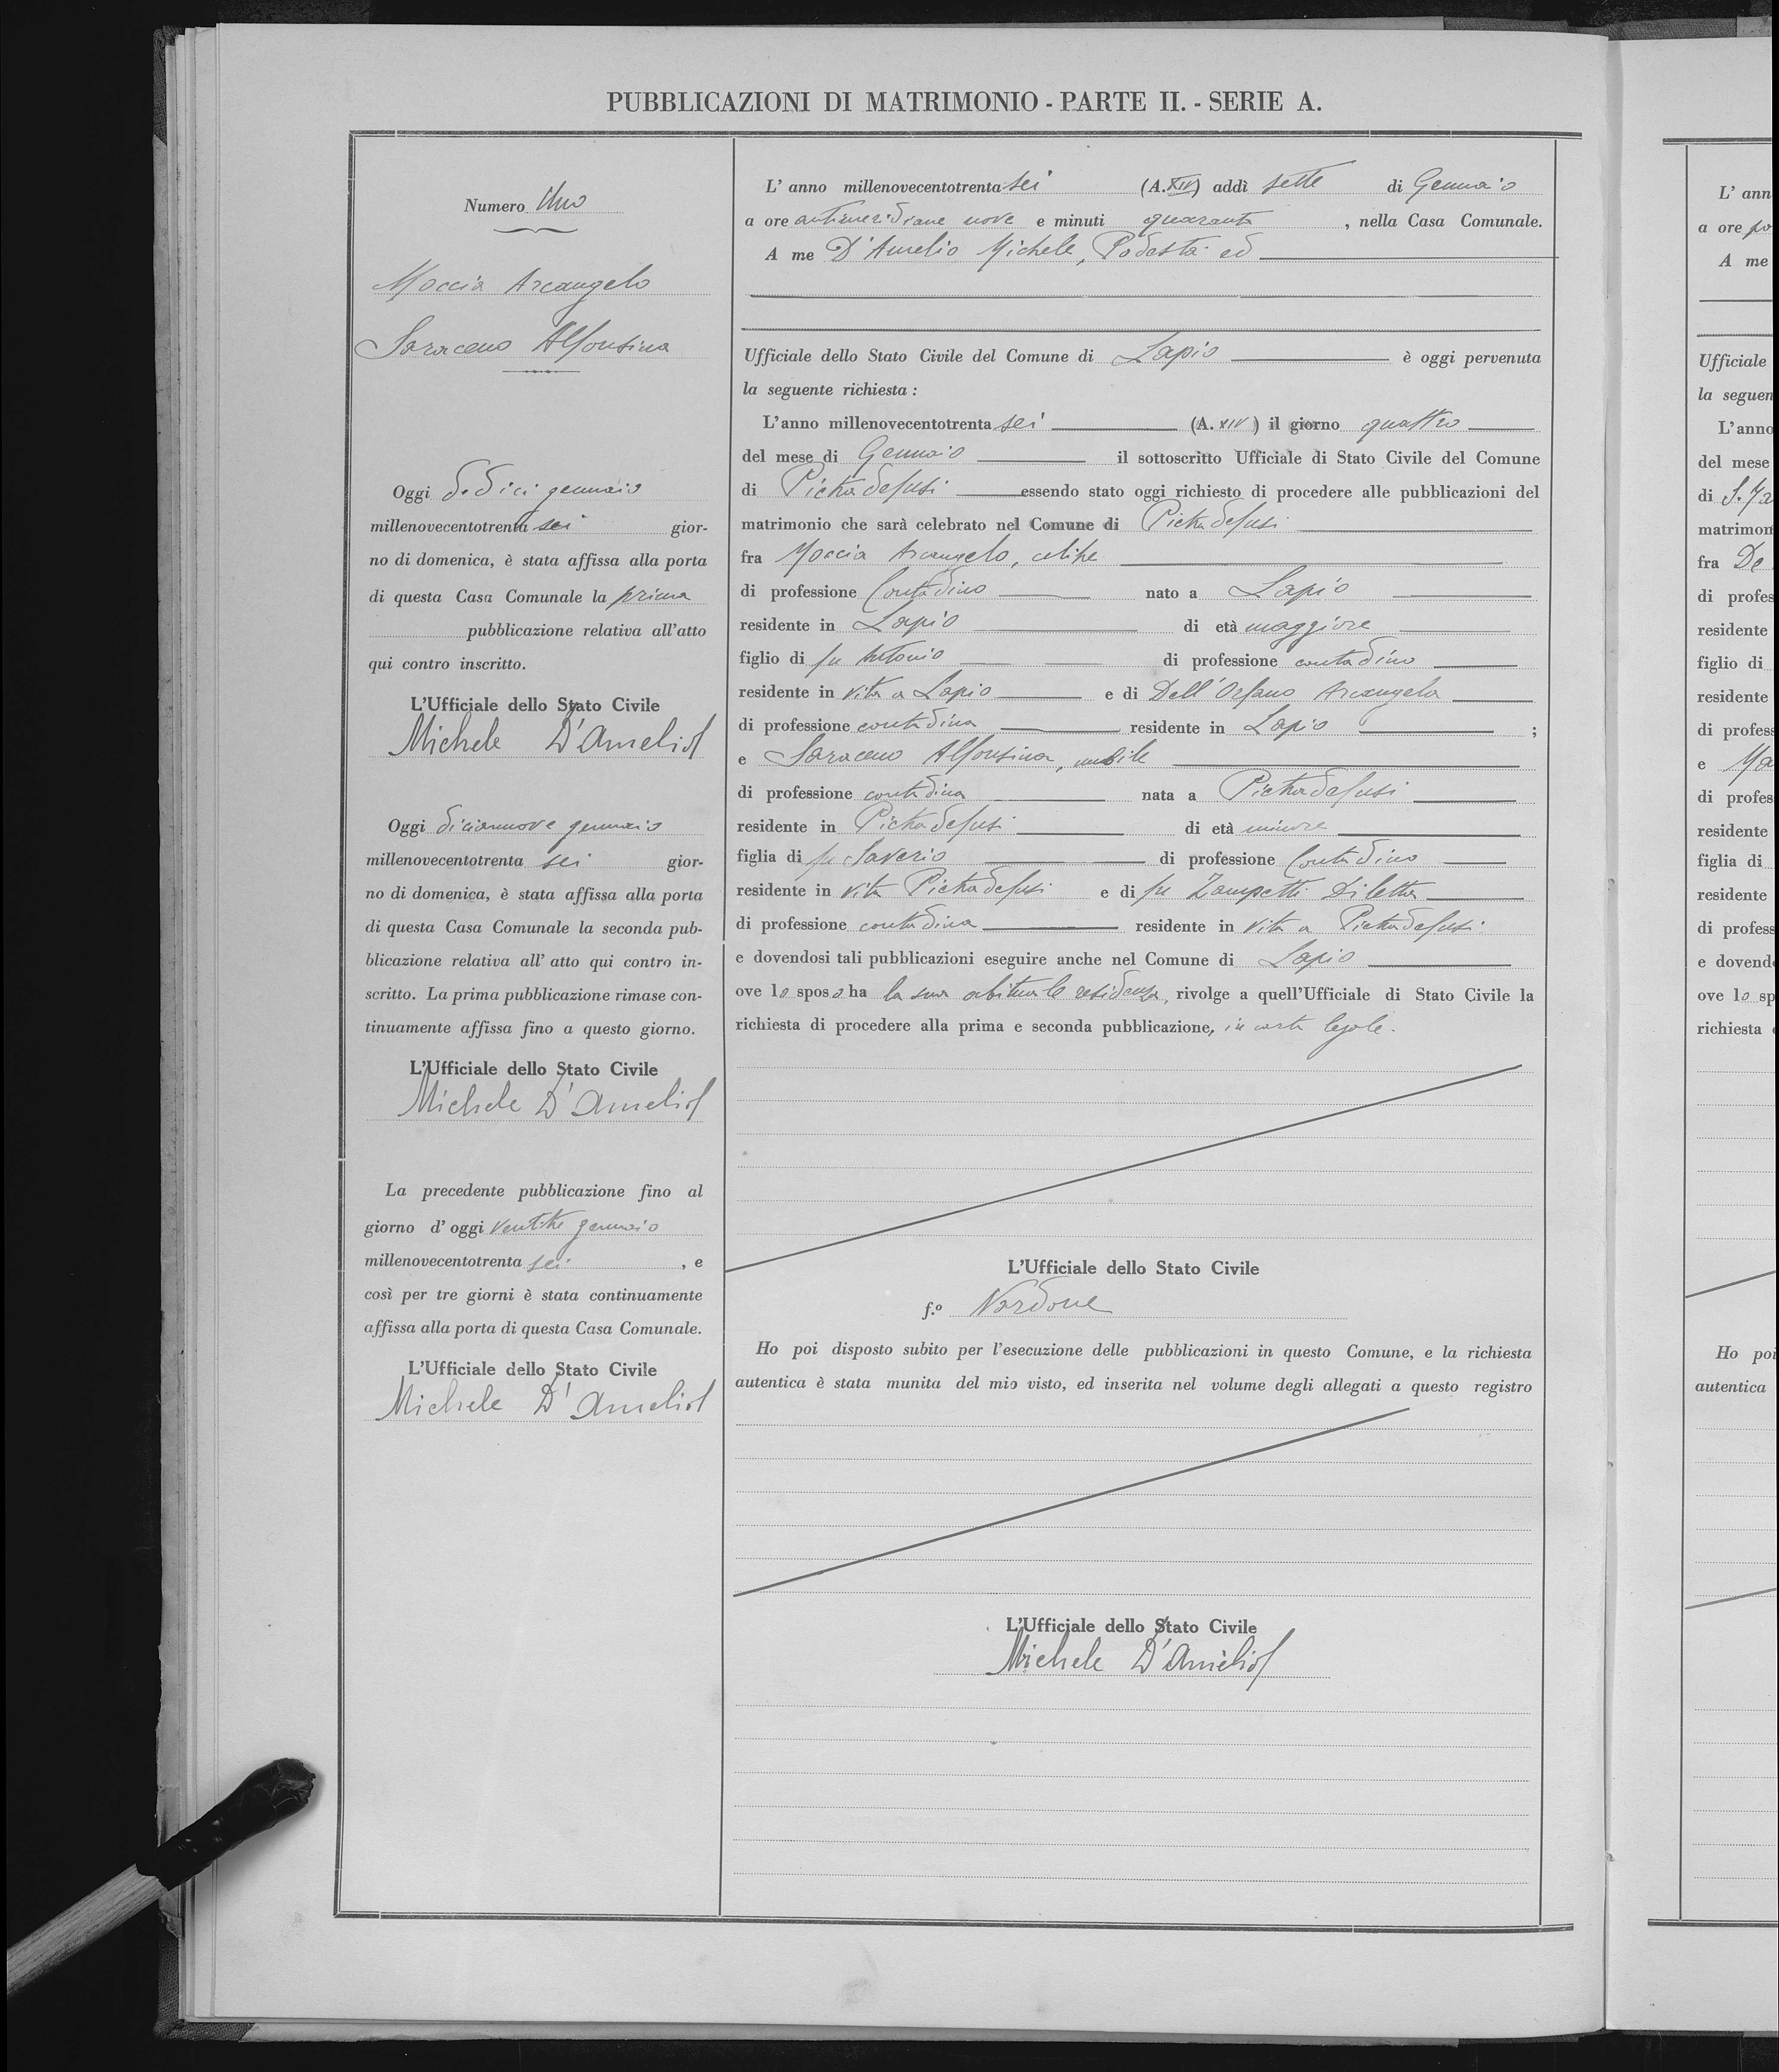 PUBBLICAZIONI DI MATRIMONIO - PARTE II. - SERIE A.
Numero Uno
Moccia Arcangelo
Saraceno Alfonsina
Oggi dodici gennaio
millenovecentotrenta sei gior-
no di domenica, è stata affissa alla porta
di questa Casa Comunale la prima
pubblicazione relativa all'atto
qui contro inscritto.
L'Ufficiale dello Stato Civile
Michele D'Amelio
Oggi diciannove gennaio
millenovecentotrenta sei gior-
no di domenica, è stata affissa alla porta
di questa Casa Comunale la seconda pub-
blicazione relativa all' atto qui contro in-
scritto. La prima pubblicazione rimase con-
tinuamente affissa fino a questo giorno.
L'Ufficiale dello Stato Civile
Michele D'Amelio
La precedente pubblicazione fino al
giorno d' oggi ventitre gennaio
millenovecentotrenta sei , e
così per tre giorni è stata continuamente
affissa alla porta di questa Casa Comunale.
L'Ufficiale dello Stato Civile
Michele D'Amelio
L' anno millenovecentotrenta sei (A. XIV) addì sette di Gennaio
a ore antimeridiane nove e minuti quaranta , nella Casa Comunale.
A me D'Amelio Michele, Podestà ed
Ufficiale dello Stato Civile del Comune di Lapio è oggi pervenuta
la seguente richiesta :
L'anno millenovecentotrenta sei (A. XIV ) il giorno quattro
del mese di Gennaio il sottoscritto Ufficiale di Stato Civile del Comune
di Pietradefusi essendo stato oggi richiesto di procedere alle pubblicazioni del
matrimonio che sarà celebrato nel Comune di Pietradefusi
fra Moccia Arcangelo, celibe
di professione Contadino nato a Lapio
residente in Lapio di età maggiore
figlio di fu Antonio di professione contadino
residente in vita a Lapio e di Dell'Orfano Arcangela
di professione contadina residente in Lapio ;
e Saraceno Alfonsina, nubile
di professione contadina nata a Pietradefusi
residente in Pietradefusi di età minore
figlia di fu Saverio di professione Contadino
residente in vita Pietradefusi e di fu Zampetti Diletta
di professione contadina residente in vita a Pietradefusi
e dovendosi tali pubblicazioni eseguire anche nel Comune di Lapio
ove lo sposo ha la sua abituale residenza, rivolge a quell'Ufficiale di Stato Civile la
richiesta di procedere alla prima e seconda pubblicazione, in carta legale.
L'Ufficiale dello Stato Civile
f.º Nardone
Ho poi disposto subito per l'esecuzione delle pubblicazioni in questo Comune, e la richiesta
autentica è stata munita del mio visto, ed inserita nel volume degli allegati a questo registro
L'Ufficiale dello Stato Civile
Michele D'Amelio
L' ann
a ore po
A me
Ufficiale
la seguen
L'anno
del mese
di
matrimon
fra De
di profes
residente
figlio di
residente
di profess
e Ma
di profes
residente
figlia di
residente
di profess
e dovend
ove lo sp
richiesta
Ho poi
autentica